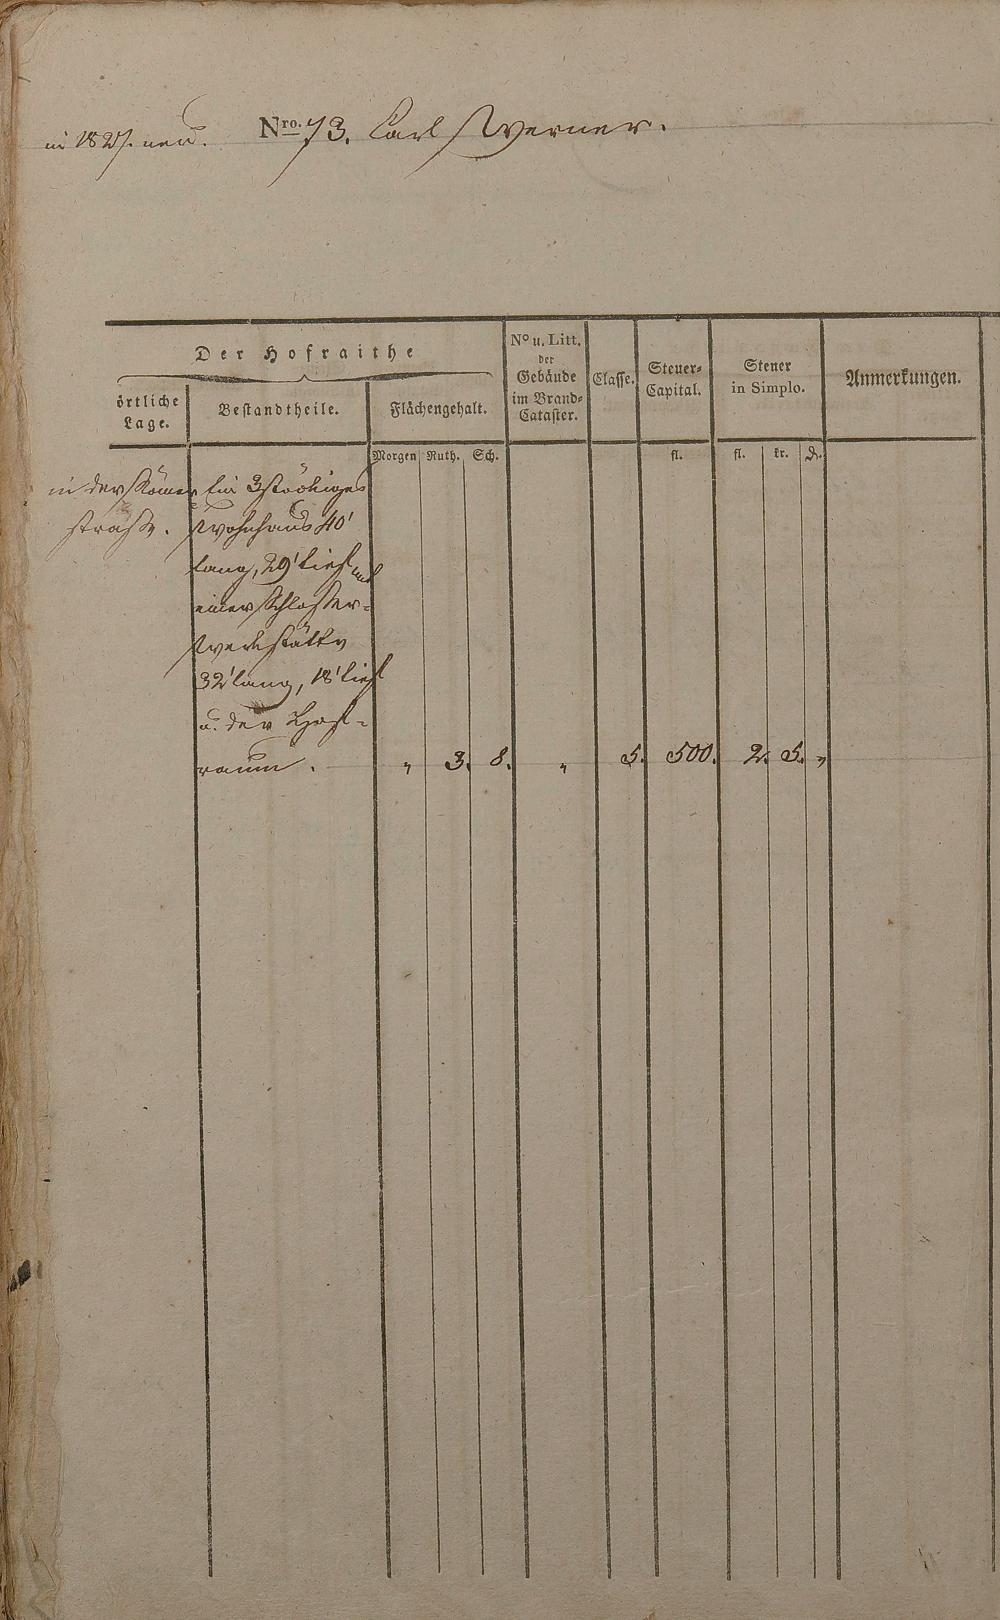 in 1827. neu.
Nro. 73. Carl Werner.
Der Hofraithe
örtliche
Lage.
Bestandtheile.
Flächengehalt.
No u. Litt.
der
Gebäude
im Brand-
Cataster.
Classe.
Steuer-
Capital.
Steuer
in Simplo.
Anmerkungen.
Morgen Ruth. Sch.
fl.
fl. kr. d.
in der Römer
straße.
Ein 3stöckiges
Wohnhaus 40'
lang, 29' tief und
einer Schlosser-
werkstätte
32' lang, 18' tief
u. der Hof-
raum. „ 3. 8. „ 5. 500. 2. 5. „